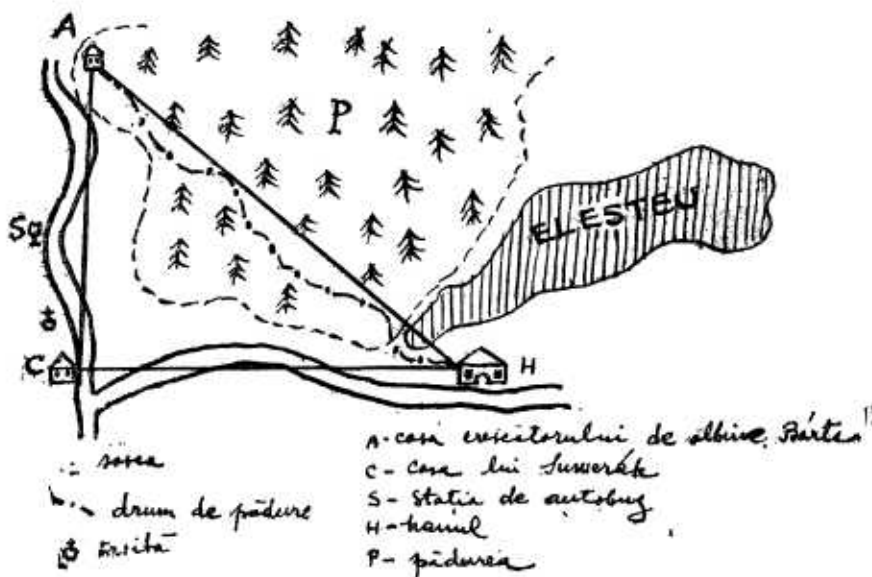 A
P
S
ELESTEU
C
H
sosea
drum de pădure
A-casa crescătorului de albine, Bárta
C- Casa lui
S- Stația de autobuz
H- hanul
P- pădurea